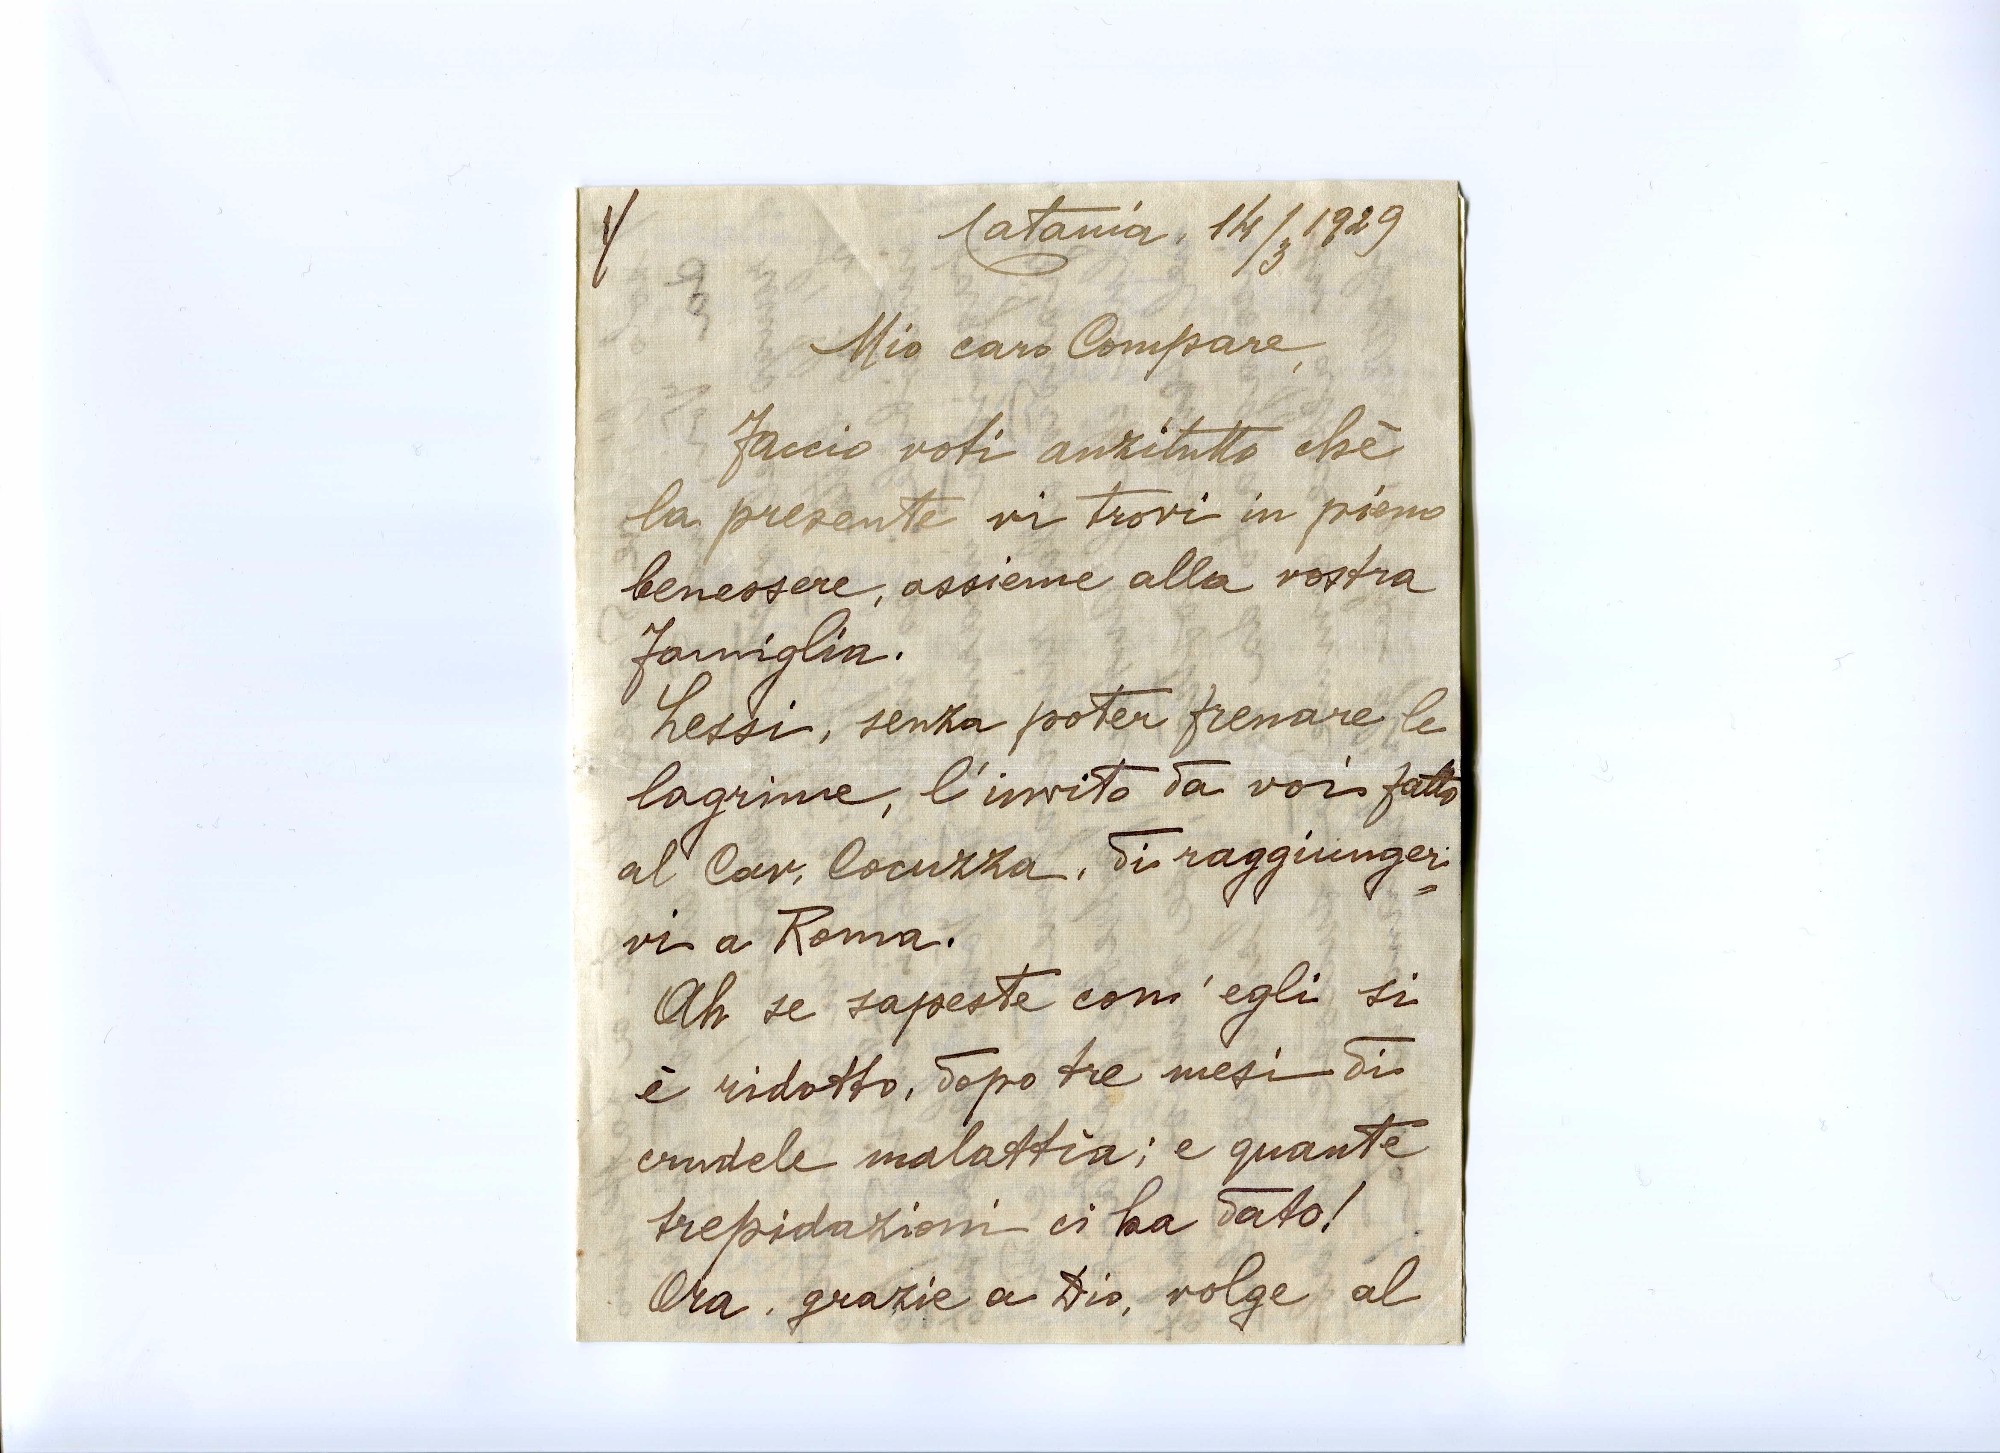 Catania, 14/3 1929
Mio caro Compare,
Faccio voti anzitutto chè
la presente vi trovi in pieno
benessere, assieme alla vostra
famiglia.
Lessi, senza poter frenare le
lagrime, l'invito da voi fatto
al Cav. Cocuzza, di raggiunger=
vi a Roma.
Ah se sapeste com' egli si
è ridotto, dopo tre mesi di
crudele malattia; e quante
trepidazioni ci ha dato!
Ora, grazie a Dio, volge al